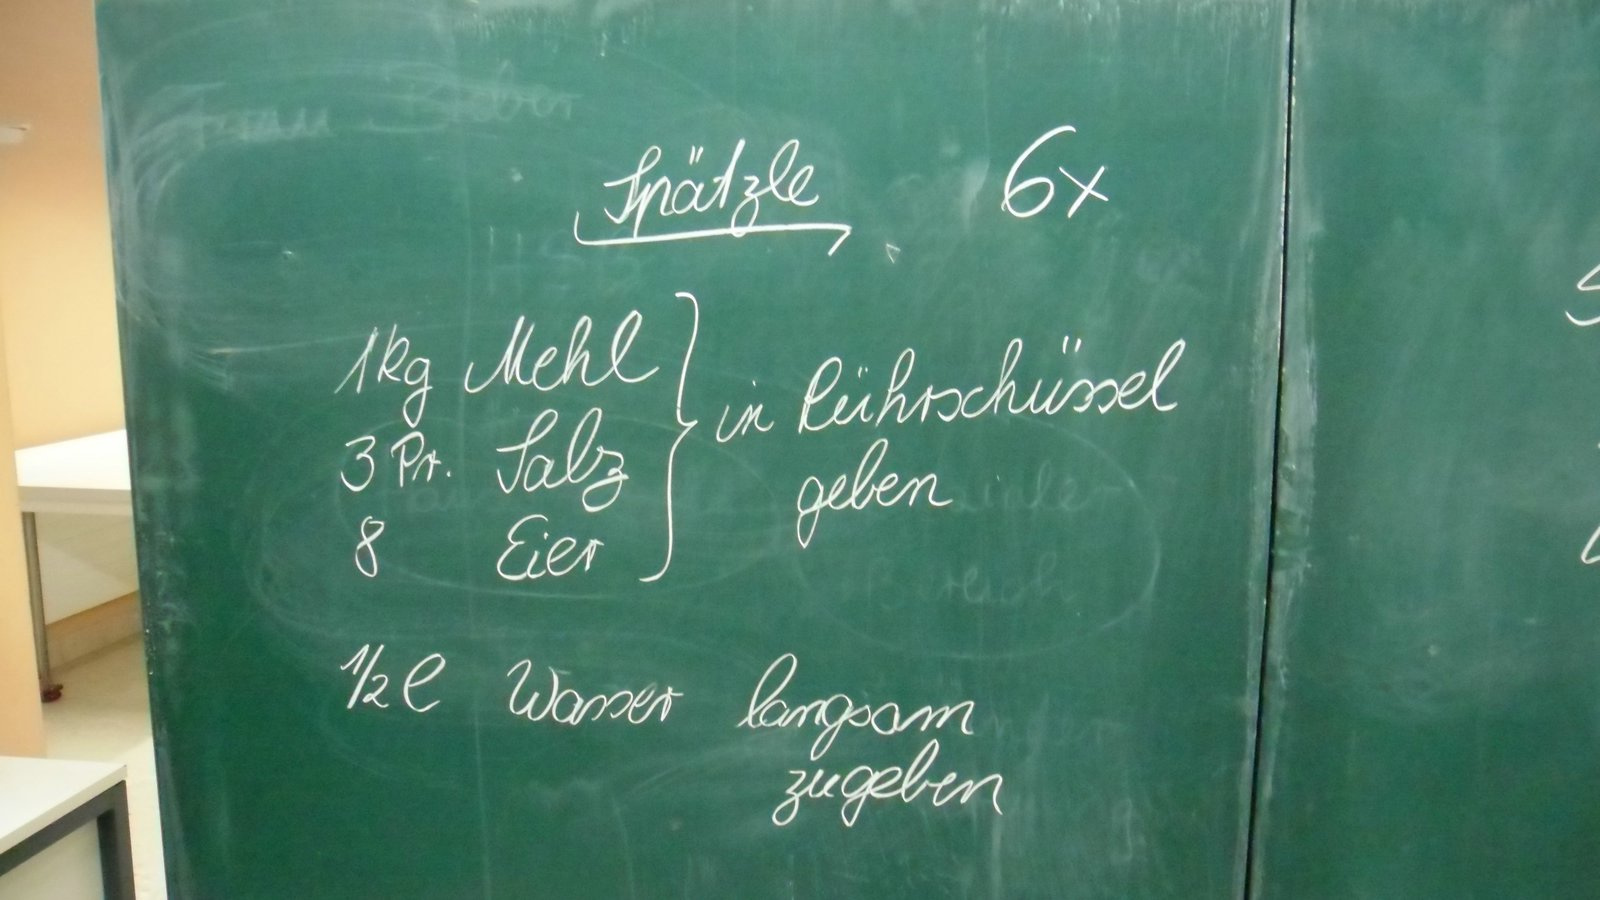 Spätzle 6x
1kg Mehl
3 Pr. Salz
8 Eier
in Rührschüssel
geben
1/2 l Wasser langsam
zugeben